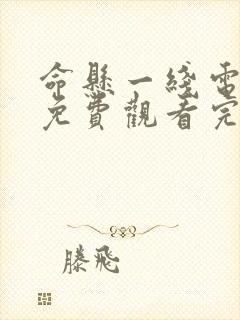 命懸一綫電
免費觀看完
滕飛